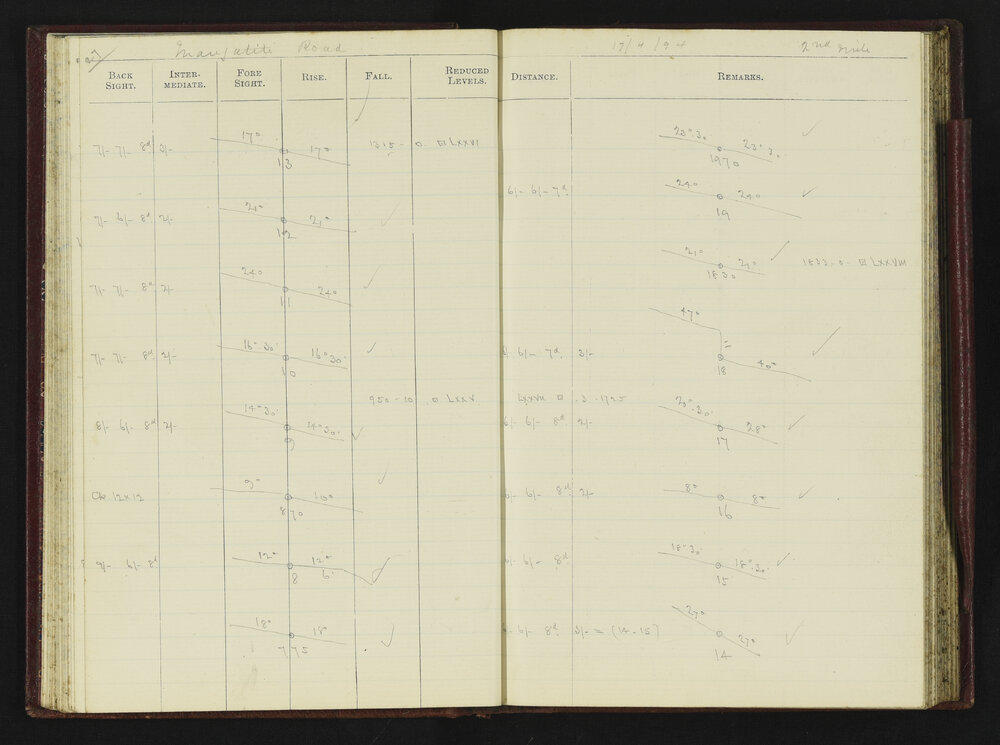 Road 17/4/94 2nd mile
BACK SIGHT. INTER-MEDIATE. FORE SIGHT. RISE. FALL. REDUCED LEVELS. DISTANCE. REMARKS.
7/- 7/- 8d 3/- 17° 17° 1315 - 0 ⊡ LXXVI
13
7/- 6/- 8d 2/- 21° 21°
12
7/- 7/- 8d 2/- 24° 24°
11
7/- 7/- 8d 2/- 16° 30' 16° 30'
10
950 - 10 ⊡ LXXV
8/- 6/- 8d 2/- 14° 30' 14° 30'
9
12 x 12 9° 10°
870
9/- 6/- 8d 12° 12°
8 6
18° 18°
775
23° 30' 23° 30'
1970
6/- 6/- 7d 24° 24°
19
21° 21° 1833 - 0 ⊡ LXXVIII
1830
6/- 7d 3/- 47° 40°
18
LXXVII ⊡ 3 1725
6/- 8d 2/- 28° 30' 28°
17
6/- 8d 2/- 8° 8°
16
6/- 8d 18° 30' 18° 30'
15
6/- 8d 3/- = (14 - 15) 27° 27°
14